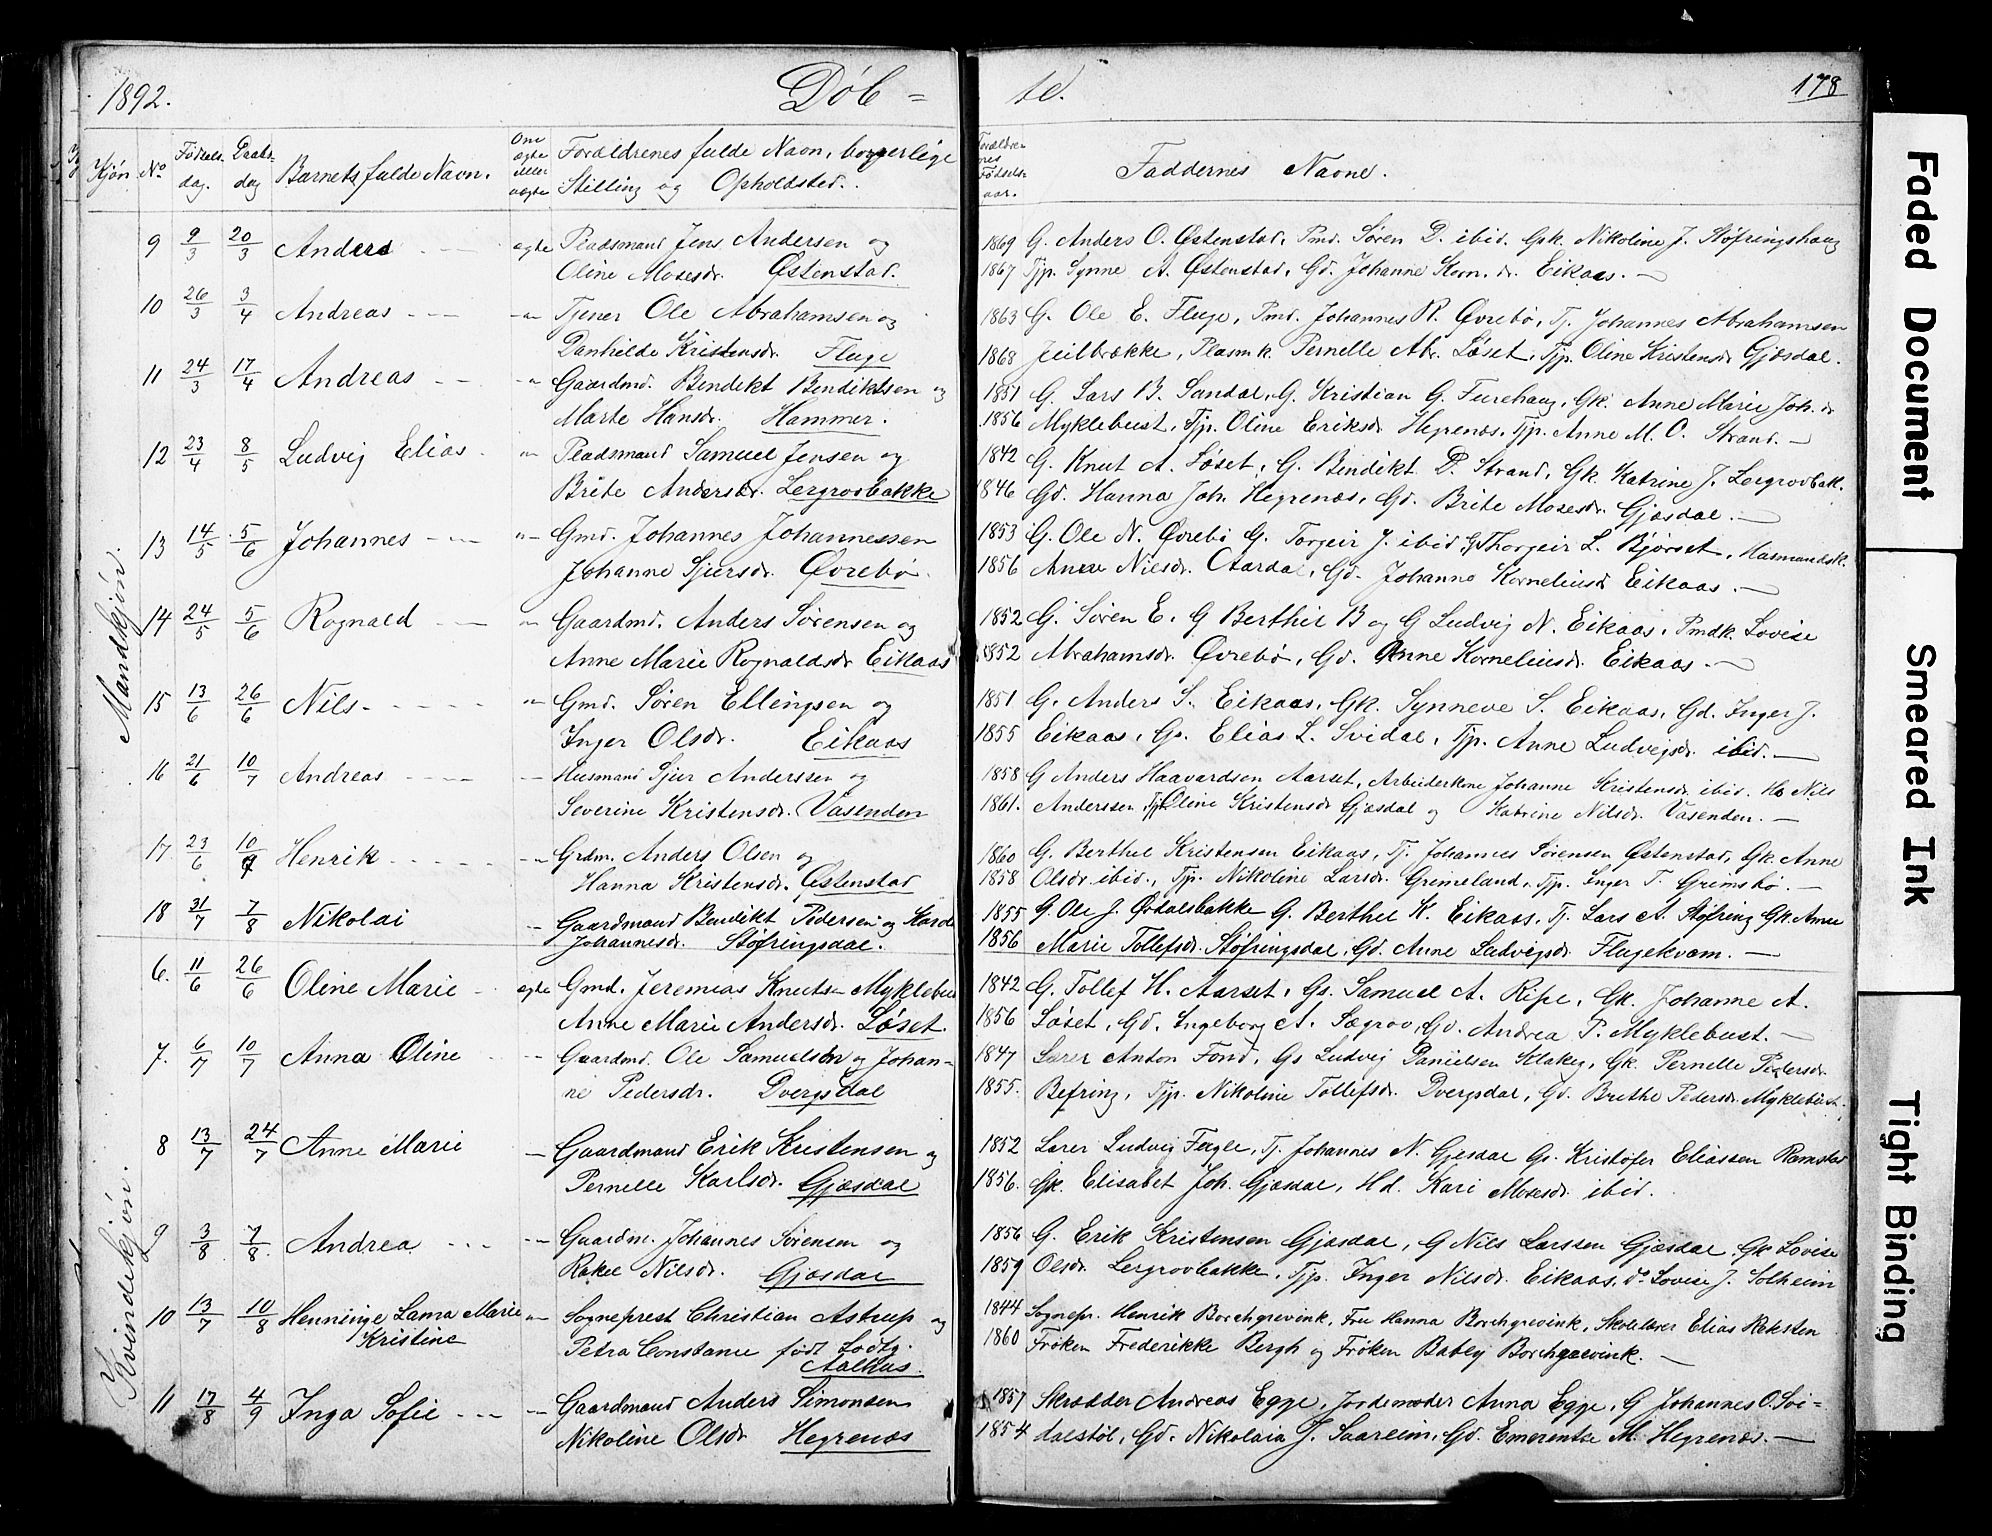 1892. Døb = te. 178
Kjøn No. Fødsels- dag. Daabs- dag Barnets fulde Navn. Om ægte eller uægte Forældrenes fulde Navn, borgerlige Stilling og Opholdsted. Forældrenes Fødsels- aar. Faddernes Navne.
Mandkjøn.
9 9/3 20/3 Anders - - ægte Pladsmand Jens Andersen og 1869 G. Anders O. Østenstad, Pmd. Søren D. ibid. Gk. Nikoline J. Støfringshaug
Oline Mosesdr. Østenstad. 1867 Tjp. Synne A. Østenstad, Gd. Johanne Korn. dr. Eikaas. —
10 26/3 3/4 Andreas - - - " Tjener Ole Abrahamsen og 1863 G. Ole E. Fluge, Pmd. Johannes R. Øvrebø, Tj. Johannes Abrahamsen
Danhilde Kristensdr. Fluge 1868 Jeilbrække, Plasmk. Pernelle Abr. Løset, Tjp. Oline Kristensdr Gjæsdal.
11 24/3 17/4 Andreas - - " Gaardmd. Bendikt Bendiktsen og 1851 G. Lars B. Sandal, G. Kristian G. Furehaug, Gk. Anne Marie Joh. dr.
Marte Hansdr. Hammer. 1856 Myklebust, Tjp. Oline Eriksdr Hegrenæs, Tjp. Anne M. O. Strand. —
12 23/4 8/5 Ludvig Elias - " Pladsmand Samuel Jensen og 1842 G. Knut A. Løset, G. Bendikt D. Strand, Gk. Katrine J. Lergrovbak.
Brite Andersdr. Lergrovbakke 1846 Gd. Hanna Joh. Hegrenæs, Gd. Brite Mosesdr. Gjæsdal. —
13 14/5 5/6 Johannes - - " Gmd. Johannes Johannessen 1853 G. Ole N. Øvrebø G. Torgeir J. ibid G Thorgeir L. Bjørset, Husmandsk.
Johanne Sjursdr. Øvrebø. 1856 Anne Nilsdr. Aardal, Gd. Johanne Korneliusd Eikaas. —
14 24/5 5/6 Rognald - - " Gaardmd. Anders Sørensen og 1852 G. Søren E. G Berthel B og G Ludvig N. Eikaas, Pmdk. Lovise
Anne Marie Rognaldsdr Eikaas 1852 Abrahamsdr. Øvrebø, Gd. Anne Korneliusdr. Eikaas. —
15 13/6 26/6 Nils - - - - " Gmd. Søren Ellingsen og 1851 G. Anders S. Eikaas, Gk. Synneve S. Eikaas, Gd. Inger J.
Inger Olsdr. Eikaas 1855 Eikaas, Gs. Elias L. Svidal, Tjp. Anne Ludvigsdr. ibid. —
16 21/6 10/7 Andreas - - - - - Husmand Sjur Anderssen og 1858 G Anders Haavardsen Aarset, Arbeiderkone Johanne Kristensdr. ibid. Hd Nils
Severine Kristensdr. Vasenden 1861. Anderssen, Tjp Oline Kristensdr Gjæsdal og Katrine Nilsdr. Vasenden. —
17 23/6 10/7 Henrik - - - - - - Grdm. Anders Olsen og 1860 G. Berthel Kristensen Eikaas, Tj. Johannes Sørensen Østenstad, Gk. Anne
Hanna Kristensdr. Østenstad 1858 Olsdr. ibid., Tjp. Nikoline Larsdr. Grimeland, Tjp. Inger T. Grimsbø. —
18 31/7 7/8 Nikolai - Gaardmand Bendikt Pedersen og 1855 G. Ole J. Ødalsbakke G. Berthel K. Eikaas, Tj. Lars A. Støfring Gk. Anne
Johannesdr. Støfringsdal. 1856 Marie Tollefsdr. Støfringsdal, Gd. Anne Ludvigsdr. Flugekvam. —
Kvindekjøn.
6. 11/6 26/6 Oline Marie - ægte Gmd. Jeremias Knutsen Myklebu 1842 G. Tollef H. Aarset, Gs. Samuel A. Ripe, Gk. Johanne A.
Anne Marie Andersdr. Løset. 1856 Løset, Gd. Ingeborg A. Sægrov, Gd. Andrea P. Myklebust. —
7. 6/7 10/7 Anna Oline - - - Gaardmd. Ole Samuelsen og Johan- 1847 Lærer Anton Fond, Gs Ludvig Danielsen Klakeg, Gk. Pernelle Pedersdr
ne Pedersdr. Dvergsdal 1855. Befring, Tjp. Nikoline Tollefsdr. Dvergsdal, Gd. Brethe Pedersdr. Myklebust.
8 13/7 24/7 Anne Marie - Gaardmand Erik Kristensen og 1852 Lærer Ludvig Fugle, Tj. Johannes N. Gjesdal Gs. Kristofer Eliassen Ramstad
Pernelle Karlsdr. Gjæsdal 1856. Gk. Elisabet Joh. Gjæsdal, Hd. Kari Mosesdr. ibid.
9 3/8 7/8 Andrea - - - - - Gaardm. Johannes Sørensen og 1856 G. Erik Kristensen Gjæsdal, G Nils Larssen Gjæsdal, Gk Lovise
Rakel Nilsdr. Gjæsdal 1859 Olsdr. Lergrovbakke, Tjp. Inger Nilsdr. Eikaas, do Lovise J. Solheim
10 13/7 10/8 Henninge Lama Marie " Sogneprest Christian Astrup og 1844 Sognepr. Henrik Borchgrevink, Fru Hanna Borchgrevink, Skolelærer Elias Reksten
Kristine Petra Constance født Lodtg. 1860 Frøken Frederikke Bergh og Frøken Bably Borchgrevink. —
Aalhus.
11 17/8 4/9 Inga Sofie - - - - Gaardmand Anders Simonsen 1857 Skrædder Andreas Egge, Jordemoder Anna Egge, G Johannes O. Svi=
Nikoline Olsdr Hegrenæs 1854 dalstøl, Gd. Nikolaia J. Saareim, Gd. Emerentse M. Hegrenæs. —
Faded Document
Smeared Ink
Tight Binding